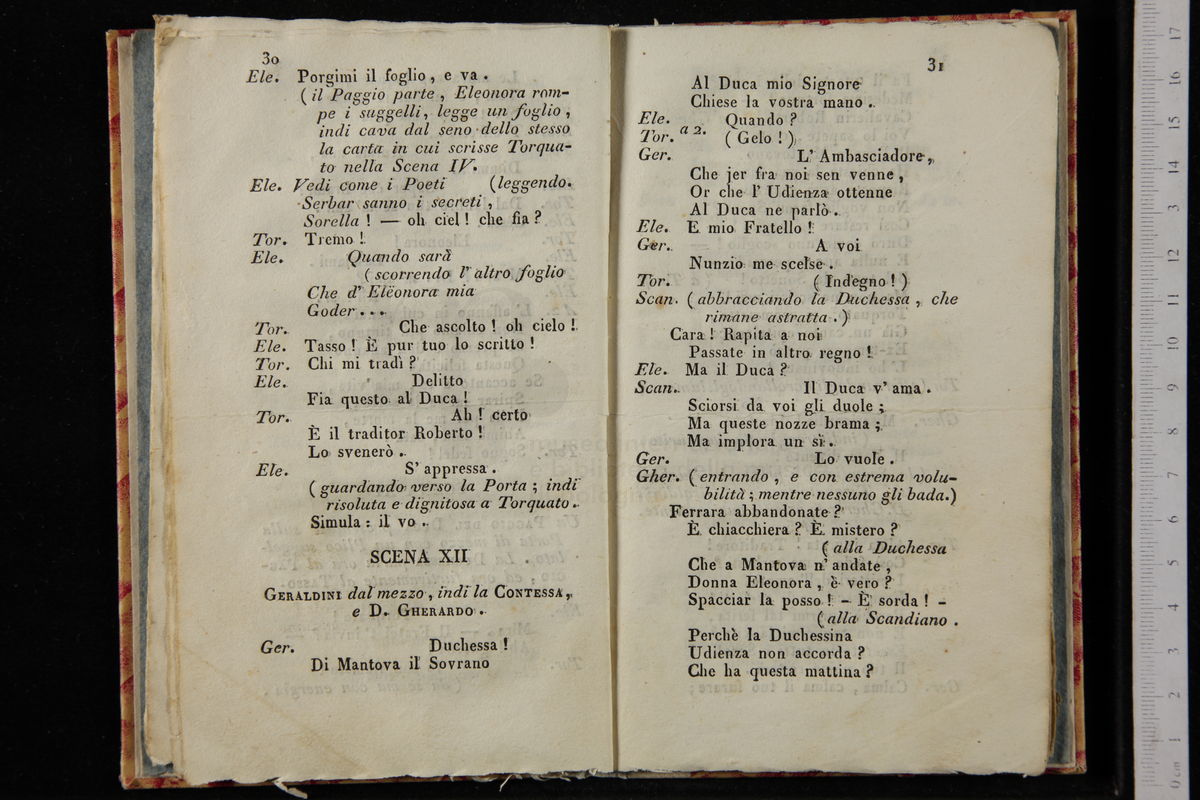 30
Ele. Porgimi il foglio, e va.
(il Paggio parte, Eleonora rom-
pe i suggelli, legge un foglio,
indi cava dal seno dello stesso
la carta in cui scrisse Torqua-
to nella Scena IV.
Ele. Vedi come i Poeti (leggendo.
Serbar sanno i secreti,
Sorella! — oh ciel! che fia?
Tor. Tremo!
Ele. Quando sarà
(scorrendo l'altro foglio
Che d'Elëonora mia
Goder...
Tor. Che ascolto! oh cielo!
Ele. Tasso! È pur tuo lo scritto!
Tor. Chi mi tradì?
Ele. Delitto
Fia questo al Duca!
Tor. Ah! certo
È il traditor Roberto!
Lo svenerò.
Ele. S'appressa.
(guardando verso la Porta; indi
risoluta e dignitosa a Torquato.
Simula: il vo.
SCENA XII
GERALDINI dal mezzo, indi la CONTESSA,
e D. GHERARDO.
Ger. Duchessa!
Di Mantova il Sovrano
31
Al Duca mio Signore
Chiese la vostra mano.
Ele. Quando?
Tor. a 2. (Gelo!)
Ger. L'Ambasciadore,
Che jer fra noi sen venne,
Or che l'Udienza ottenne
Al Duca ne parlò.
Ele. E mio Fratello!
Ger. A voi
Nunzio me scelse.
Tor. (Indegno!)
Scan. (abbracciando la Duchessa, che
rimane astratta.)
Cara! Rapita a noi
Passate in altro regno!
Ele. Ma il Duca?
Scan. Il Duca v'ama.
Sciorsi da voi gli duole;
Ma queste nozze brama;
Ma implora un sì.
Ger. Lo vuole.
Gher. (entrando, e con estrema volu-
bilità; mentre nessuno gli bada.)
Ferrara abbandonate?
È chiacchiera? È mistero?
(alla Duchessa
Che a Mantova n'andate,
Donna Eleonora, è vero?
Spacciar la posso! - È sorda! -
(alla Scandiano.
Perchè la Duchessina
Udienza non accorda?
Che ha questa mattina?